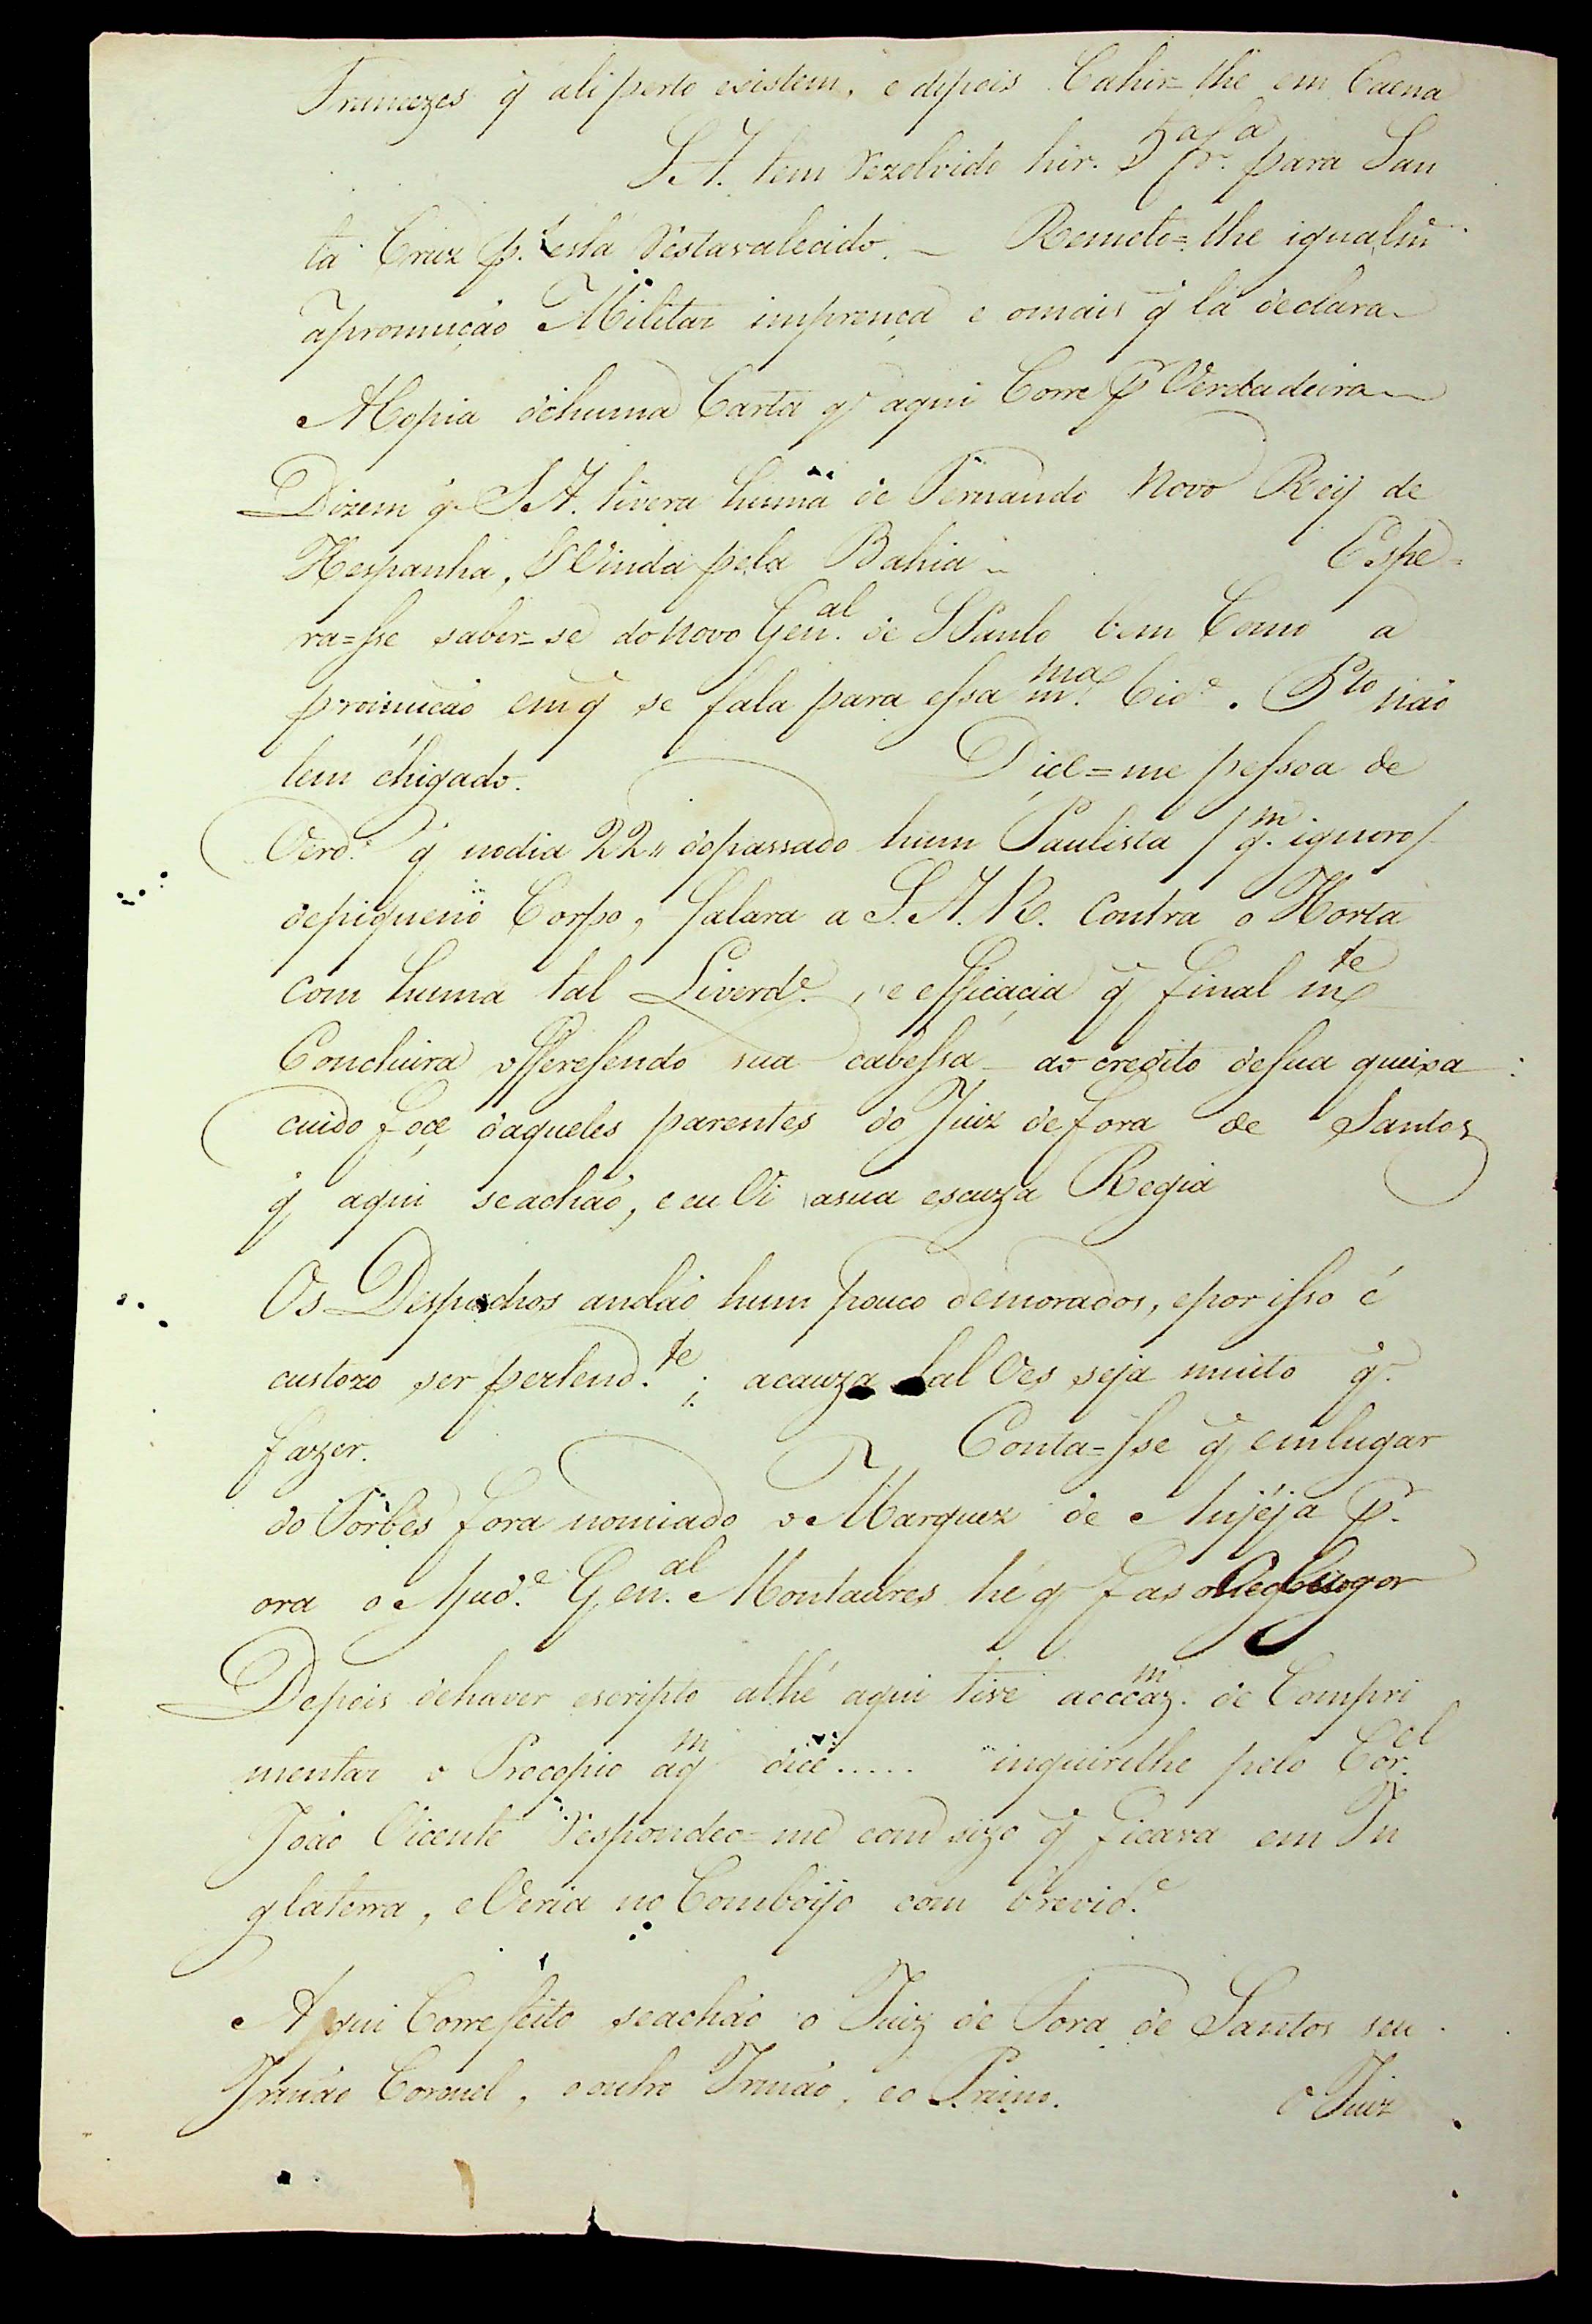 Francezes q̃ ali perto existem, e depois Cahir=lhe em Caena
S.A. tem rezolvido hir. 5.ª f.rª para San
ta Cruz p.r está restavalecido. — Remeto=lhe igualm̃
apromução Militar imprença e omais q̃ lá declara
ACopia dehuma Carta q̃ aqui Corre p.r Verdadeira
Dizem q̃ S.A. tivera huma de Fernando Novo Reÿ de
Hespanha, Vinda pela Bahia ~ Espe=
ra=sse saber-se donovo Gen.al de S Paulo bem Como a
promução emq̃ se fala para essa m.ma Cid.e . P.to não
tem chigado. Dice=me pessoa de
Verd.e q̃ nodia 22,, dopassado hum Paulista /q.m ignoro/
depiqueno Corpo, falara a S.A.R. Contra o Horta
com huma tal Liverd.e, e efficacia q̃ final m.te
Concluira offeresendo sua cabessa ao credito desua queixa :
cuido foçe daqueles parentes do Juiz defora de Santos
q̃ aqui seachão, e eu Vi asua escuza Regia
Os Despachos andão hum pouco demorados, epor isso é
custozo ser pertend.te ; acauza tal Ves seja muito q̃
fazer. Conta=sse q̃ emlugar
do Forbes fora nomiado o Marquez de Anjéja p.r
ora o Ajud.e Gen.al Montaures hé q̃ fas
Depois dehaver escripto athé aqui tive de Compri
mentar o Procopio aq.m dice..... inquirilhe pelo Cor.el
João Vicente respondeo=me com sizo q̃ ficava em In
glaterra, e Veria no Comboijo com brevid.e
Aqui Corre feito seachão o Juiz de Fora de Santos seu
Irmão Coronel, ooutro Irmão, eo Primo. o Juiz